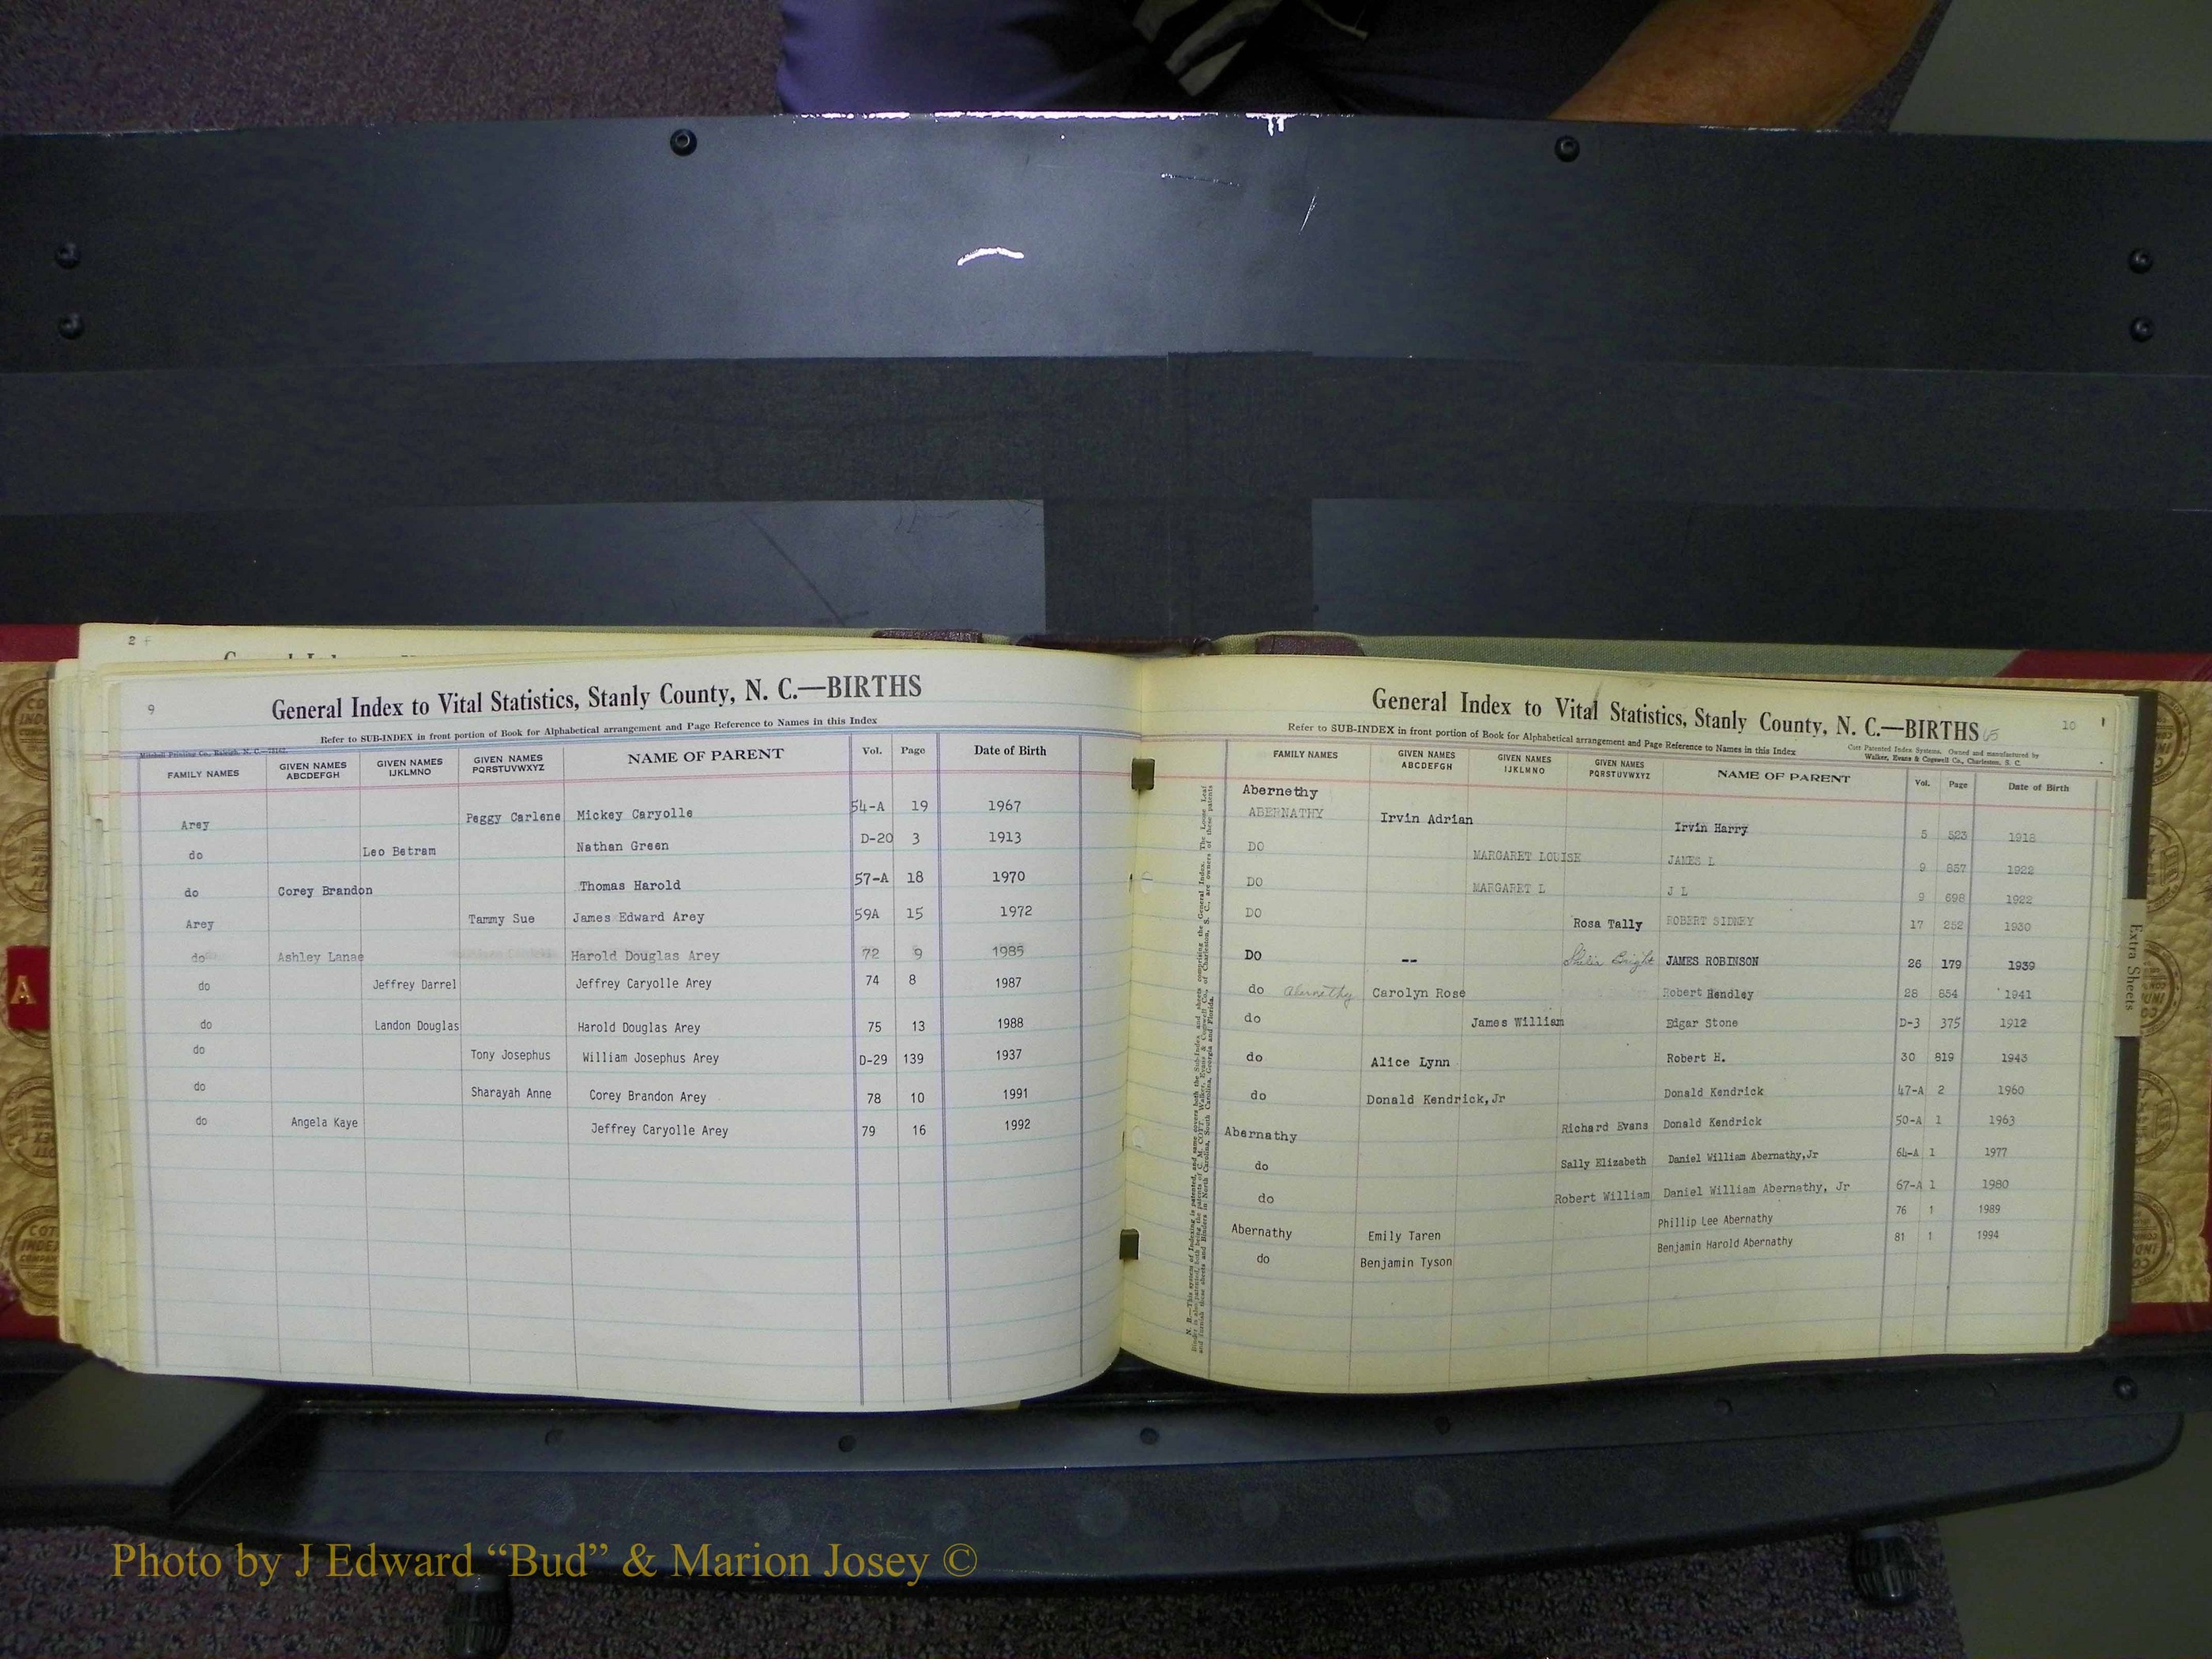 2
9
General Index to Vital Statistics, Stanly County, N. C.—BIRTHS
Refer to SUB-INDEX in front portion of Book for Alphabetical arrangement and Page Reference to Names in this Index
Mitchell Printing Co., Raleigh, N. C.
FAMILY NAMES GIVEN NAMES ABCDEFGH GIVEN NAMES IJKLMNO GIVEN NAMES PQRSTUVWXYZ NAME OF PARENT Vol. Page Date of Birth
Arey Peggy Carlene Mickey Caryolle 54-A 19 1967
do Leo Betram Nathan Green D-20 3 1913
do Corey Brandon Thomas Harold 57-A 18 1970
Arey Tammy Sue James Edward Arey 59A 15 1972
do Ashley Lanae Harold Douglas Arey 72 9 1985
do Jeffrey Darrel Jeffrey Caryolle Arey 74 8 1987
do Landon Douglas Harold Douglas Arey 75 13 1988
do Tony Josephus William Josephus Arey D-29 139 1937
do Sharayah Anne Corey Brandon Arey 78 10 1991
do Angela Kaye Jeffrey Caryolle Arey 79 16 1992
General Index to Vital Statistics, Stanly County, N. C.—BIRTHS
10
Refer to SUB-INDEX in front portion of Book for Alphabetical arrangement and Page Reference to Names in this Index
Cott Patented Index Systems. Owned and manufactured by
Walker, Evans & Cogswell Co., Charleston, S. C.
FAMILY NAMES GIVEN NAMES ABCDEFGH GIVEN NAMES IJKLMNO GIVEN NAMES PQRSTUVWXYZ NAME OF PARENT Vol. Page Date of Birth
Abernethy
ABERNATHY Irvin Adrian Irvin Harry 5 523 1918
DO MARGARET LOUISE JAMES L 9 857 1922
DO MARGARET L J L 9 698 1922
DO Rosa Tally ROBERT SIDNEY 17 252 1930
DO -- JAMES ROBINSON 26 179 1939
do Abernethy Carolyn Rose Robert Hendley 28 854 1941
do James William Edgar Stone D-3 375 1912
do Alice Lynn Robert H. 30 819 1943
do Donald Kendrick,Jr Donald Kendrick 47-A 2 1960
Abernathy Richard Evans Donald Kendrick 50-A 1 1963
do Sally Elizabeth Daniel William Abernathy,Jr 64-A 1 1977
do Robert William Daniel William Abernathy, Jr 67-A 1 1980
Abernathy Emily Taren Phillip Lee Abernathy 76 1 1989
do Benjamin Tyson Benjamin Harold Abernathy 81 1 1994
Extra Sheets
A
Photo by J Edward “Bud” & Marion Josey ©